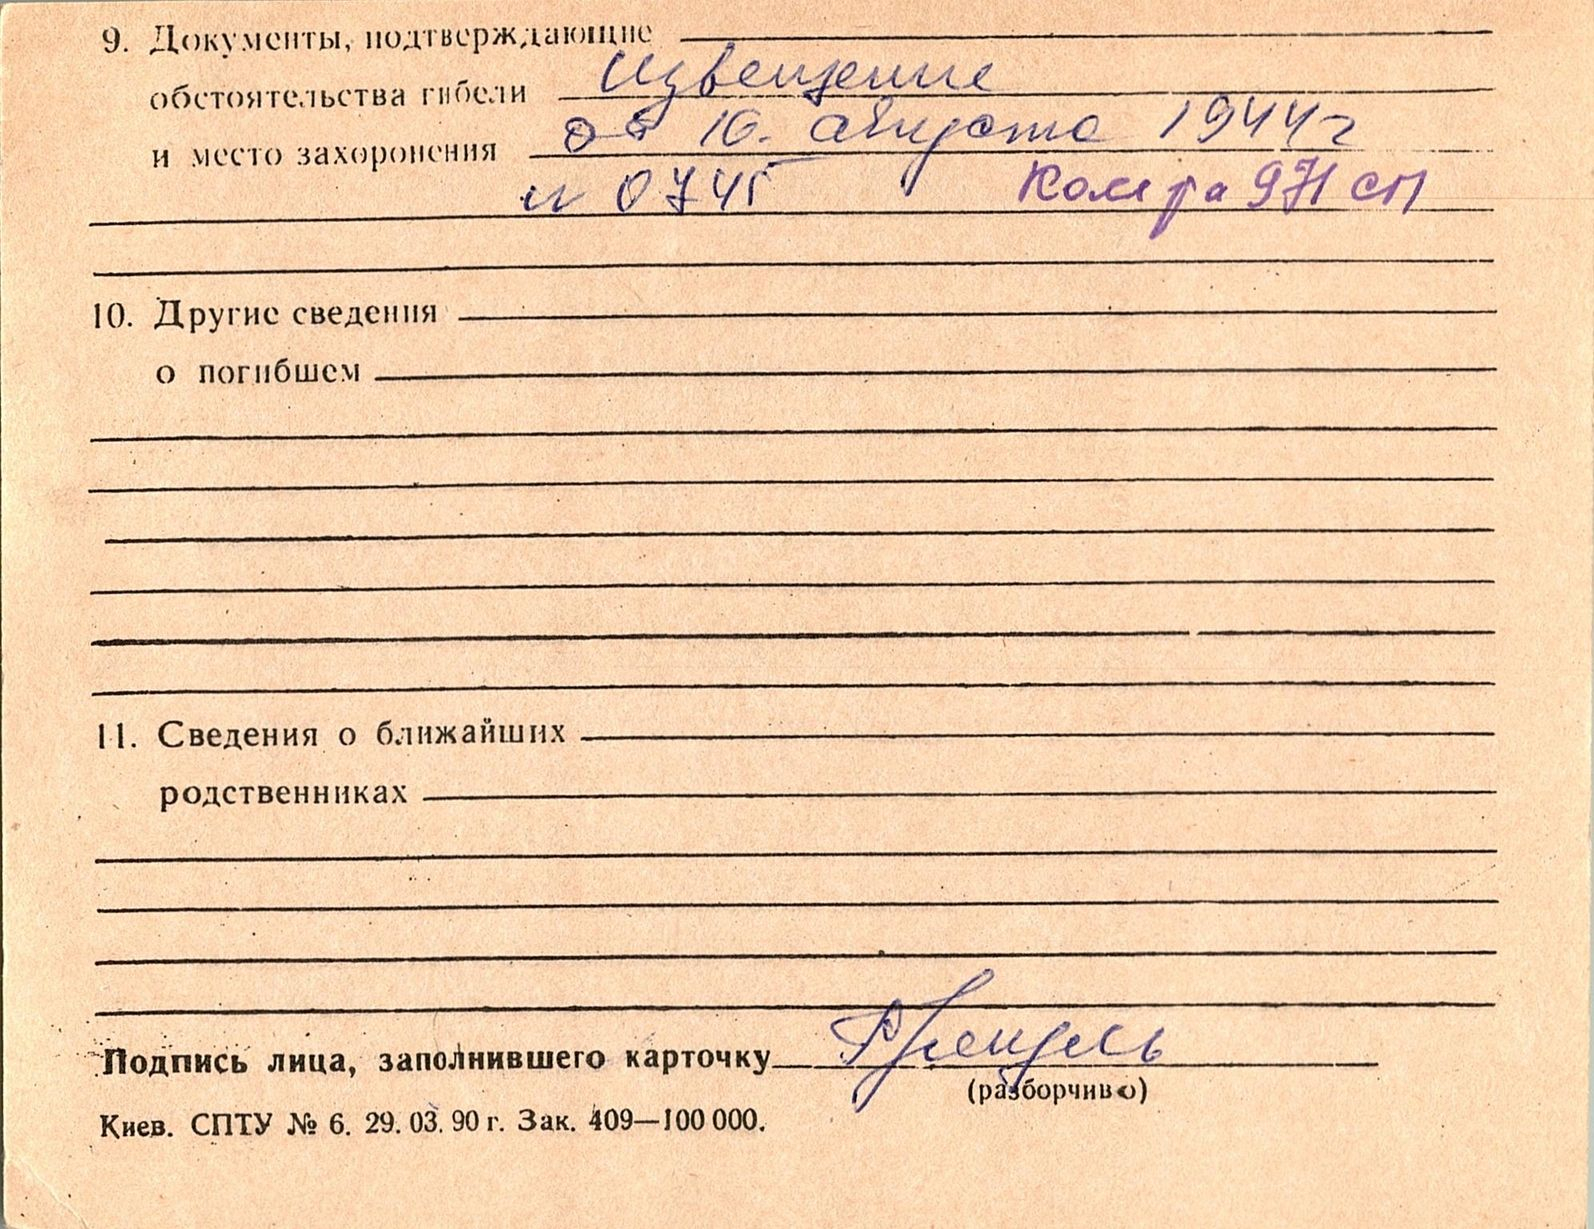 9. Документы, подтверждающие
обстоятельства гибели Извещение
и место захоронения от 16. августа 1944 г
N 0745 Ком-ра 971 сп
10. Другие сведения
о погибшем
11. Сведения о ближайших
родственниках
Подпись лица, заполнившего карточку
(разборчиво)
Киев. СПТУ № 6. 29. 03. 90 г. Зак. 409—100 000.